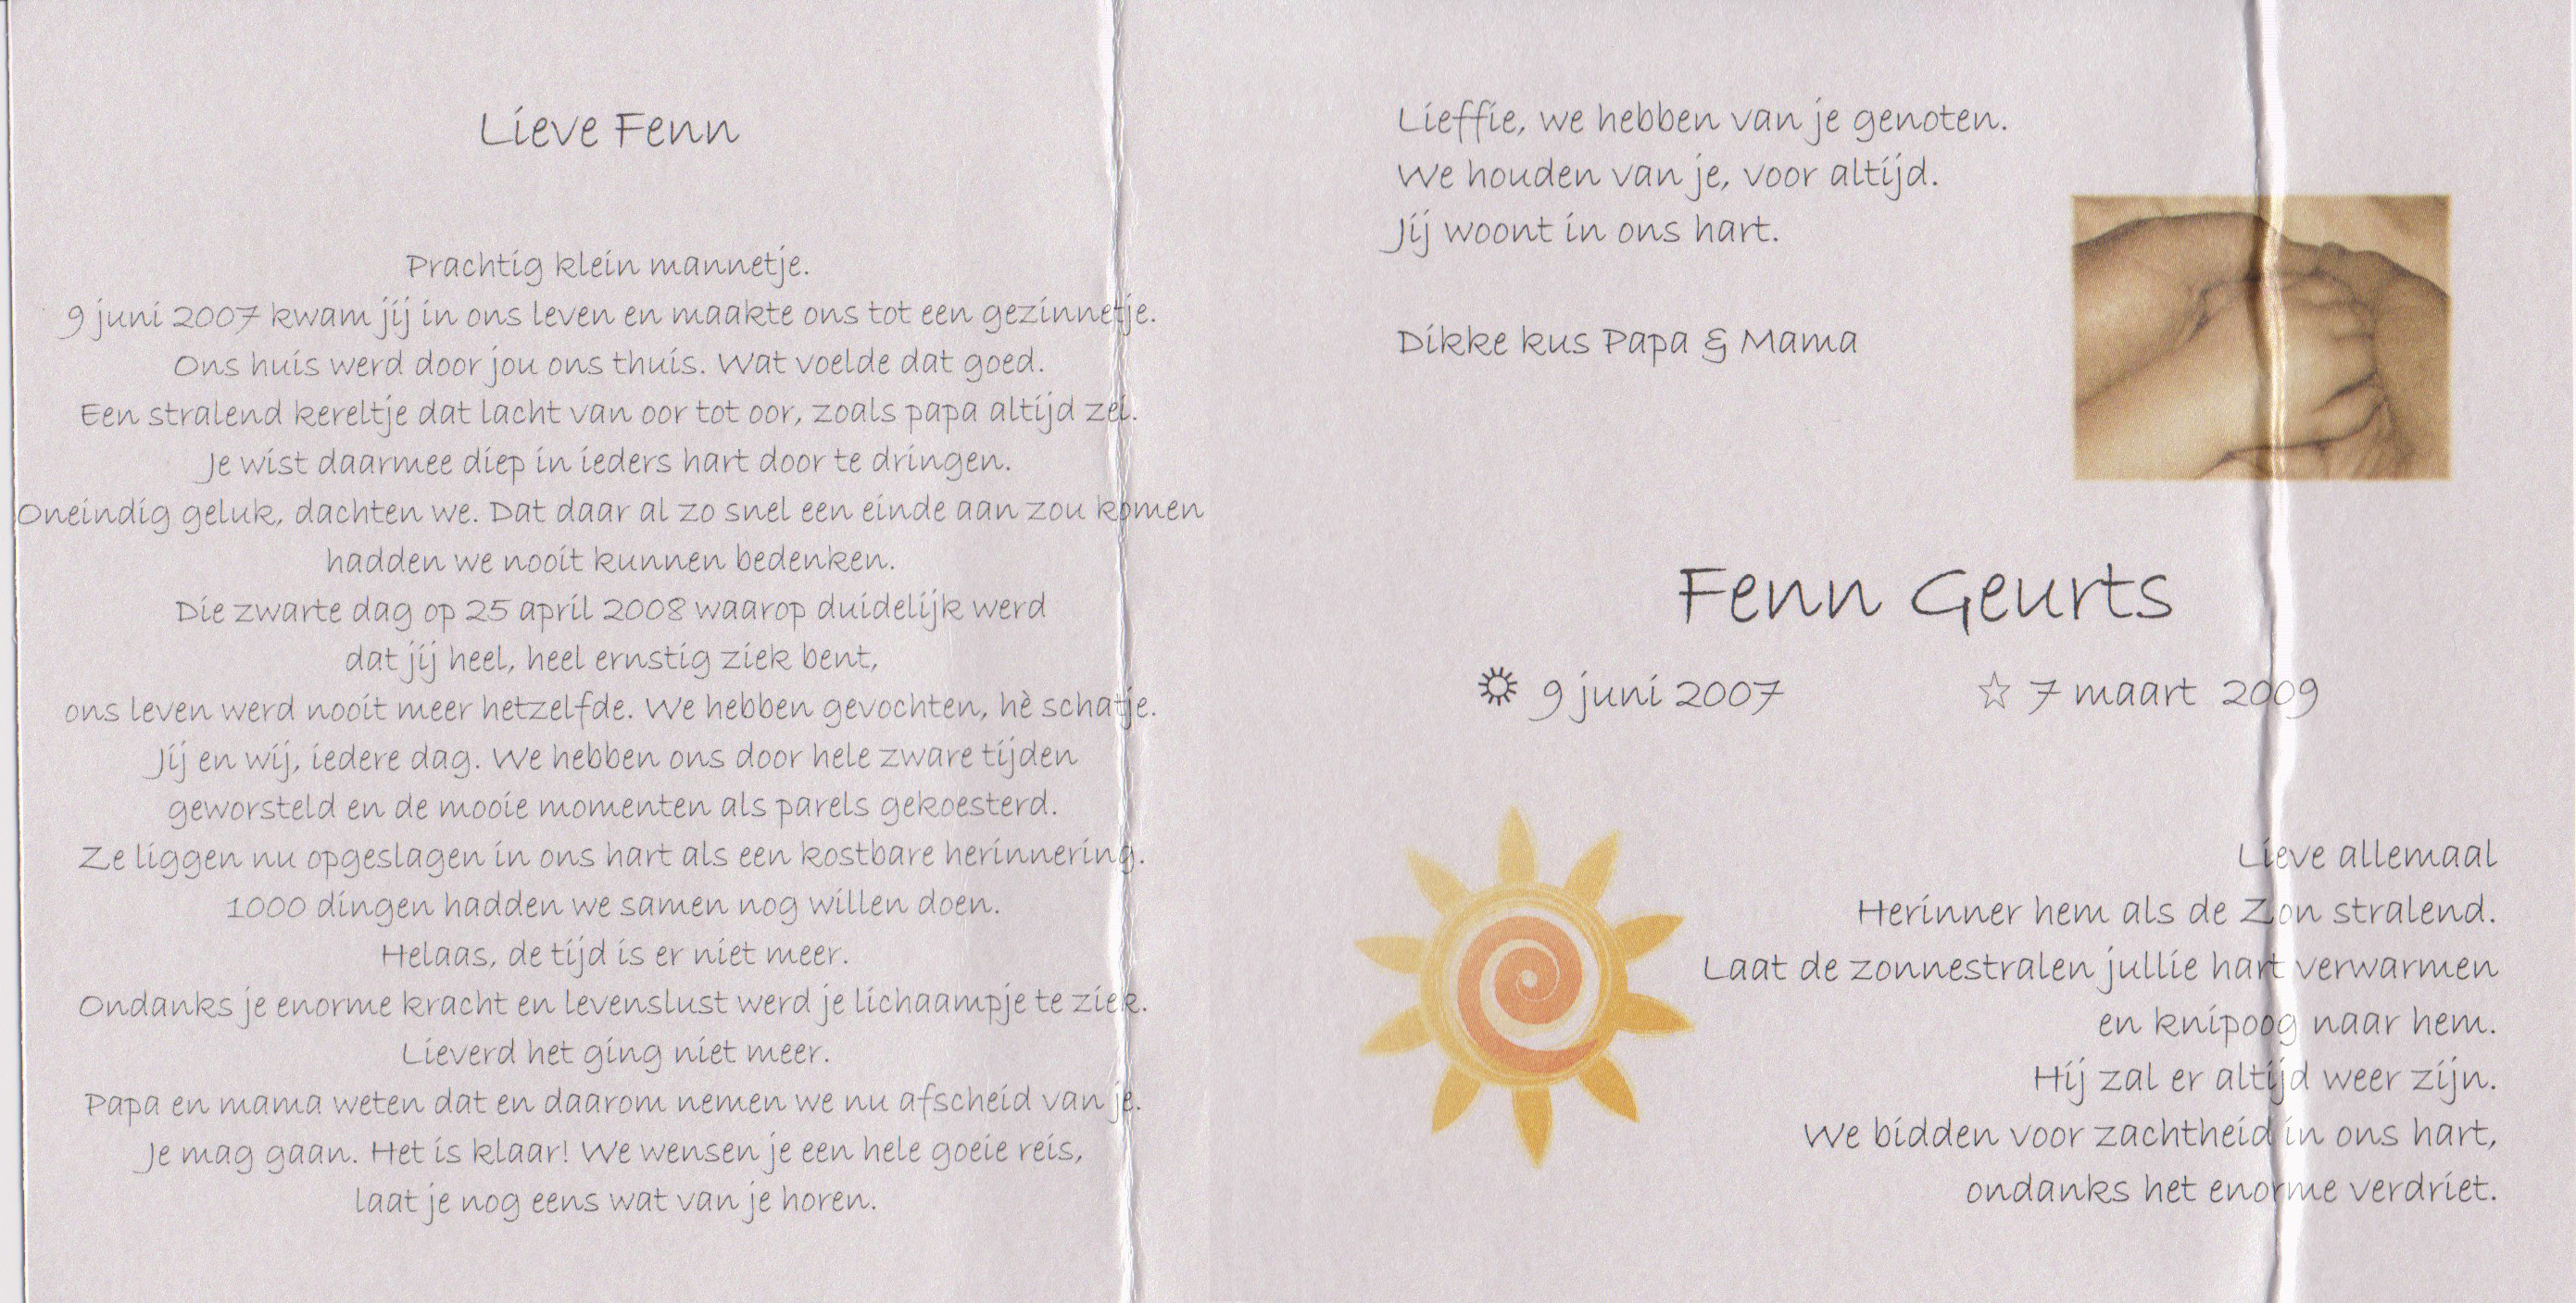 Lieve Fenn
Prachtig klein mannetje.
9 juni 2007 kwam jij in ons leven en maakte ons tot een gezinnetje.
Ons huis werd door jou ons thuis. Wat voelde dat goed.
Een stralend kereltje dat lacht van oor tot oor, zoals papa altijd zei.
Je wist daarmee diep in ieders hart door te dringen.
Oneindig geluk, dachten we. Dat daar al zo snel een einde aan zou komen
hadden we nooit kunnen bedenken.
Die zwarte dag op 25 april 2008 waarop duidelijk werd
dat jij heel, heel ernstig ziek bent,
ons leven werd nooit meer hetzelfde. We hebben gevochten, hè schatje.
Jij en wij, iedere dag. We hebben ons door hele zware tijden
geworsteld en de mooie momenten als parels gekoesterd.
Ze liggen nu opgeslagen in ons hart als een kostbare herinnering.
1000 dingen hadden we samen nog willen doen.
Helaas, de tijd is er niet meer.
Ondanks je enorme kracht en levenslust werd je lichaampje te ziek.
Lieverd het ging niet meer.
Papa en mama weten dat en daarom nemen we nu afscheid van je.
Je mag gaan. Het is klaar! We wensen je een hele goeie reis,
laat je nog eens wat van je horen.
Lieffie, we hebben van je genoten.
We houden van je, voor altijd.
Jij woont in ons hart.
Dikke kus Papa & Mama
Fenn Geurts
☼ 9 juni 2007 ☆ 7 maart 2009
Lieve allemaal
Herinner hem als de Zon stralend.
Laat de zonnestralen jullie hart verwarmen
en knipoog naar hem.
Hij zal er altijd weer zijn.
We bidden voor zachtheid in ons hart,
ondanks het enorme verdriet.